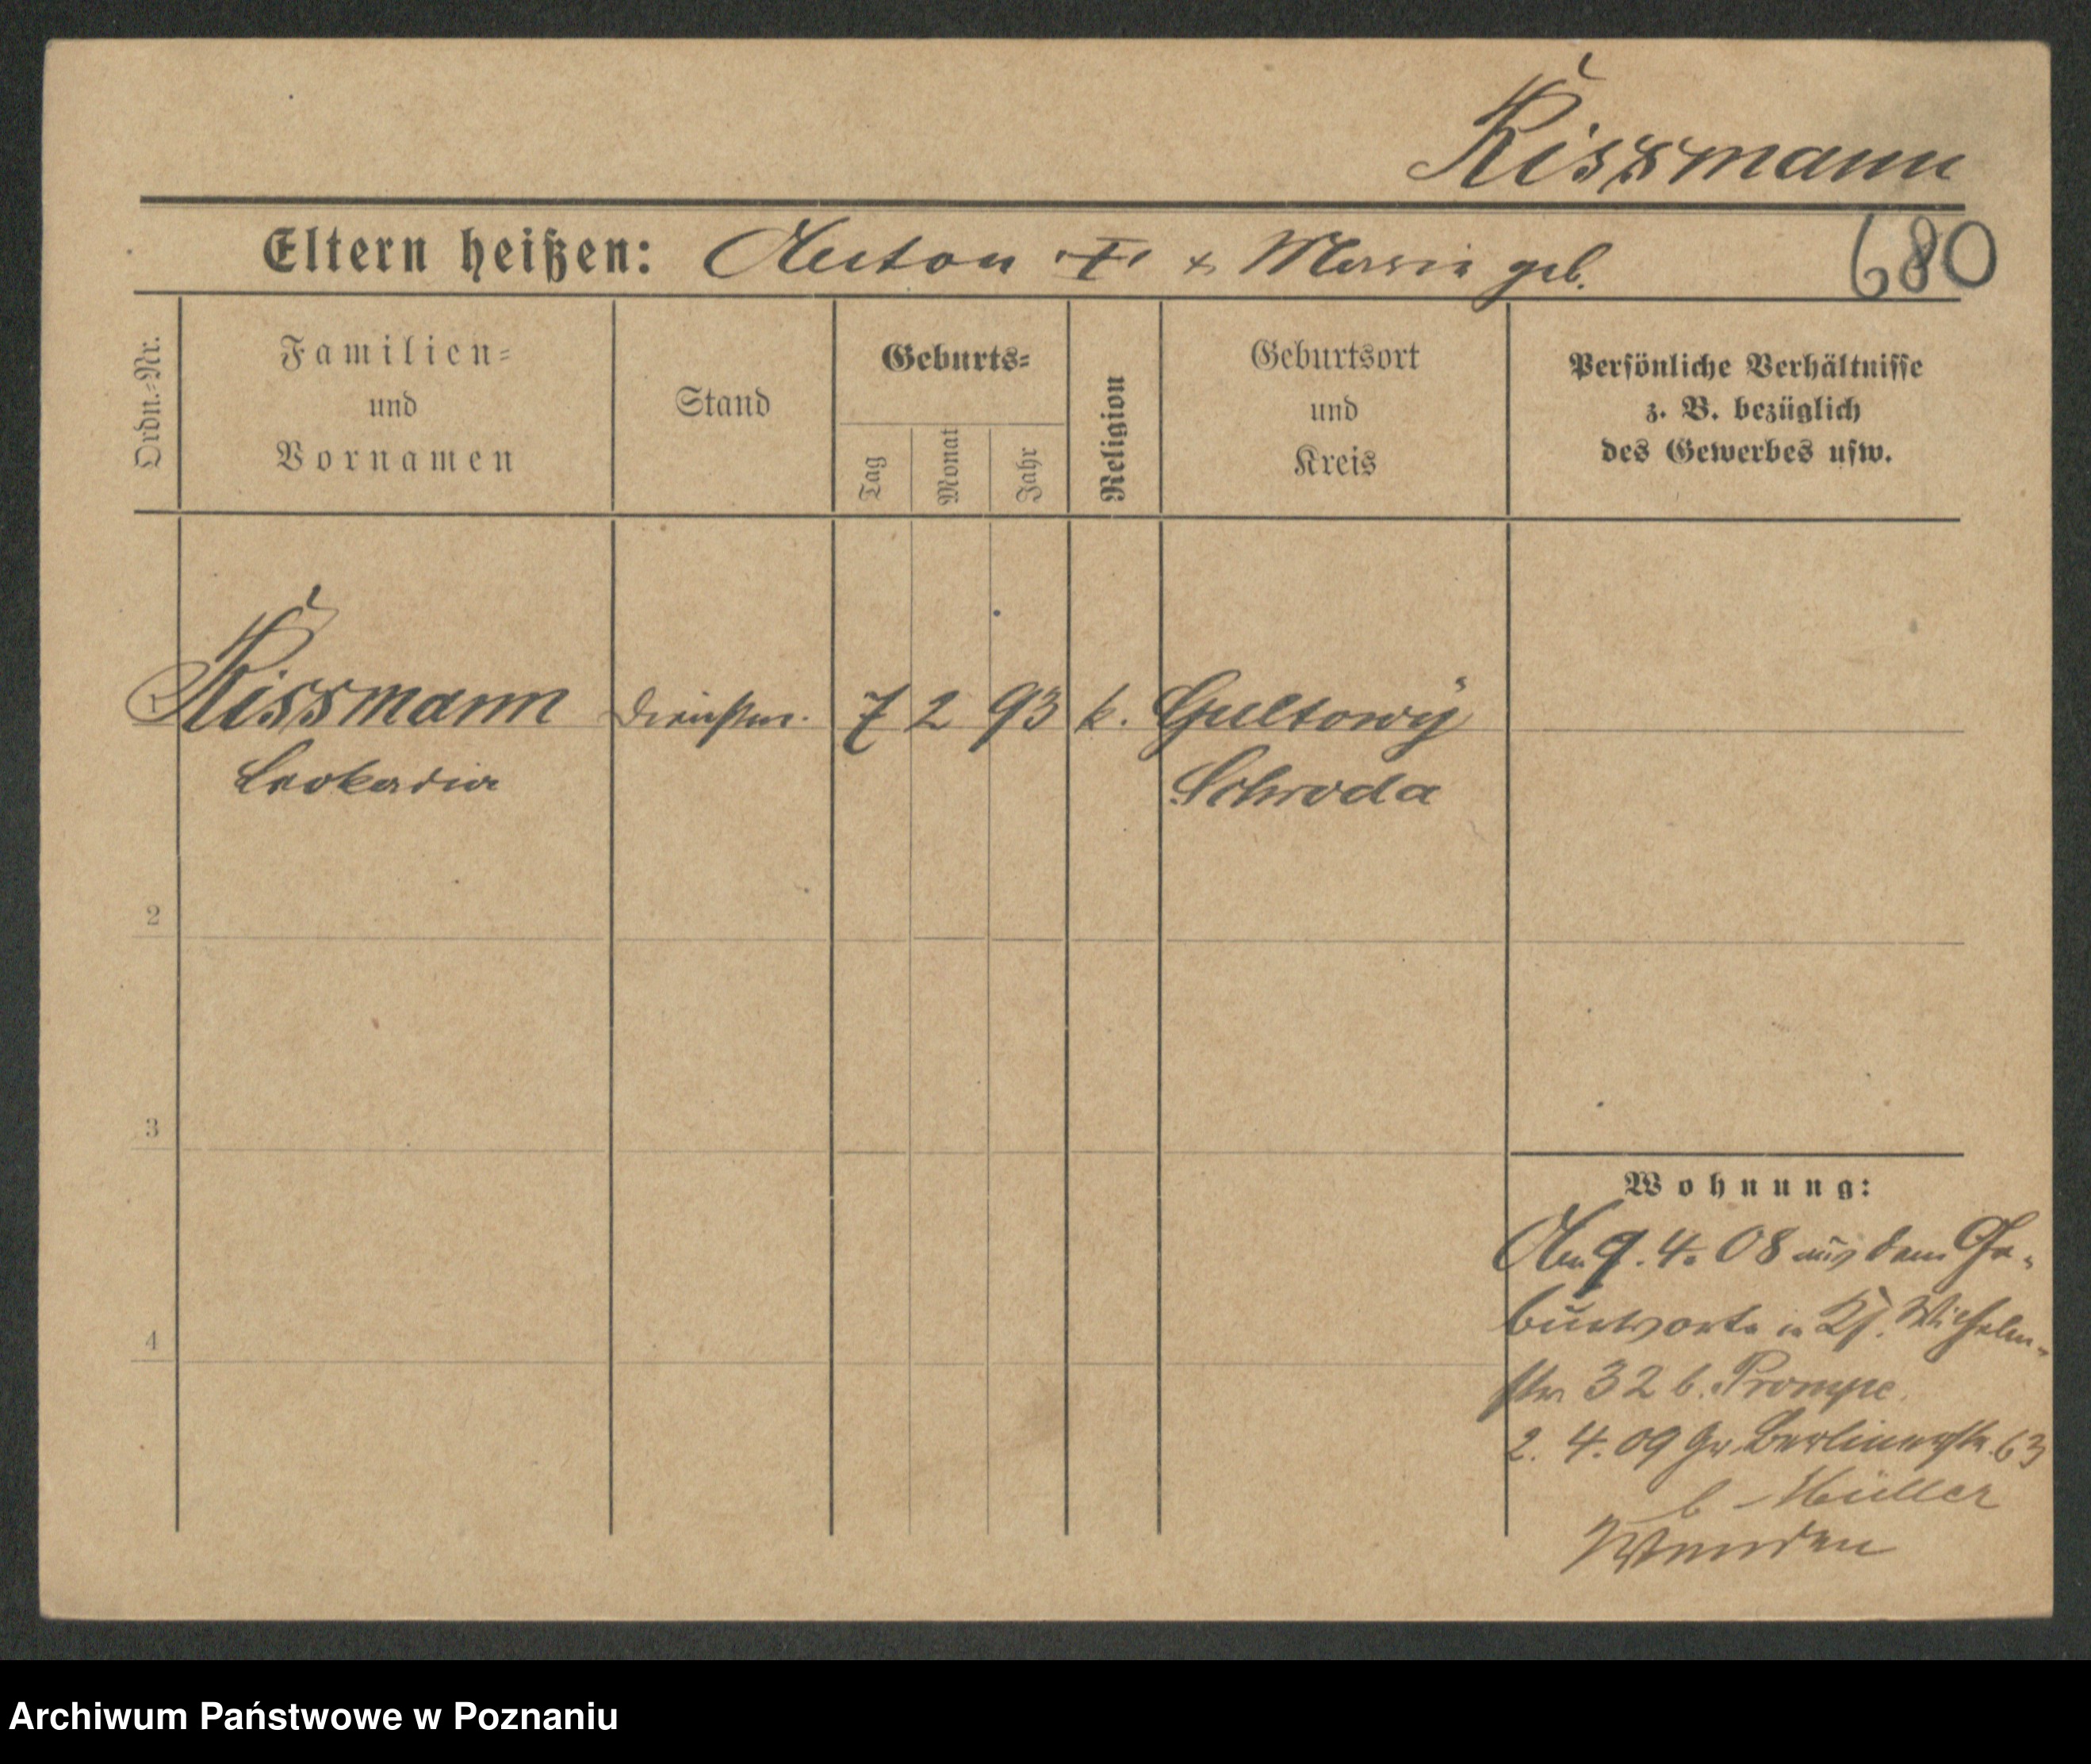 Kissmann
Eltern heißen: Anton † & Marie geb.
680
Ordn.-Nr.
Familien-
und
Vornamen
Stand
Geburts-
Tag
Monat
Jahr
Religion
Geburtsort
und
Kreis
Persönliche Verhältnisse
z. B. bezüglich
des Gewerbes usw.
1 Kissmann Dienstm. 7 2 93 k. Gultowÿ
Leokadia Schroda
2
3
4
Wohnung:
Am 9. 4. 08 aus dem Ge-
burtsorte in Wilhelm-
str 32 b. Prompe.
2. 4. 09 Gr. Berlinerstr. 63
b Müller
Wenden
Archiwum Państwowe w Poznaniu